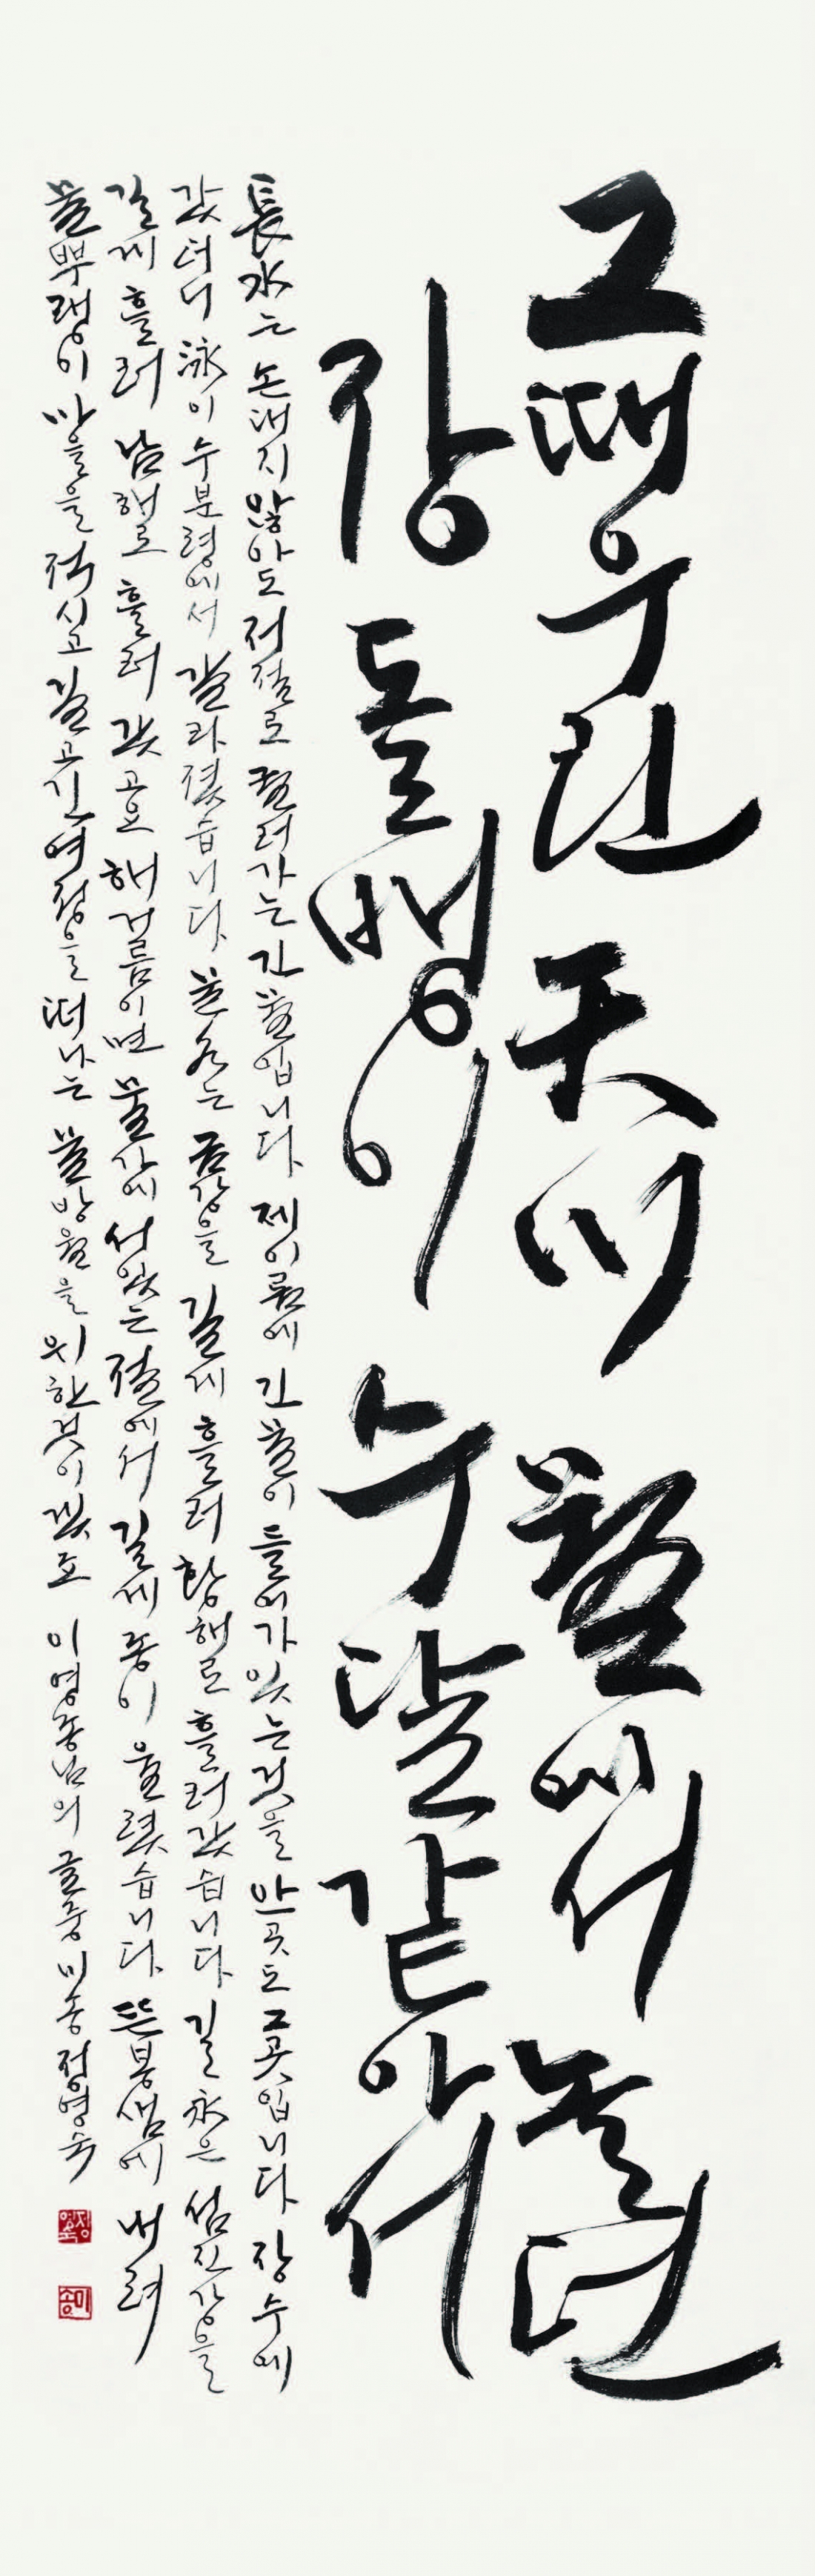 그때 우린 天川 물에서 놀던
강 돌맹이 수달 같아서
長水는 손대지 않아도 저절로 흘러가는 긴 물입니다 제 이름에 긴 물이 들어가 있는 것을 안 곳도 그곳입니다 장수에
갔더니 泳이 수분령에서 갈라졌습니다 물 水는 금강을 길게 흘러 황해로 흘러 갔습니다 길 永은 섬진강을
길게 흘러 남해로 흘러 갔고요 해거름이면 물가에 서있는 절에서 길게 종이 울렸습니다 뜬봉샘에 내려
물뿌랭이 마을을 적시고 길고긴 여정을 떠나는 물방울을 위한 것이겠죠 이영종님의 글 중 미송 정영숙
정영숙
미송